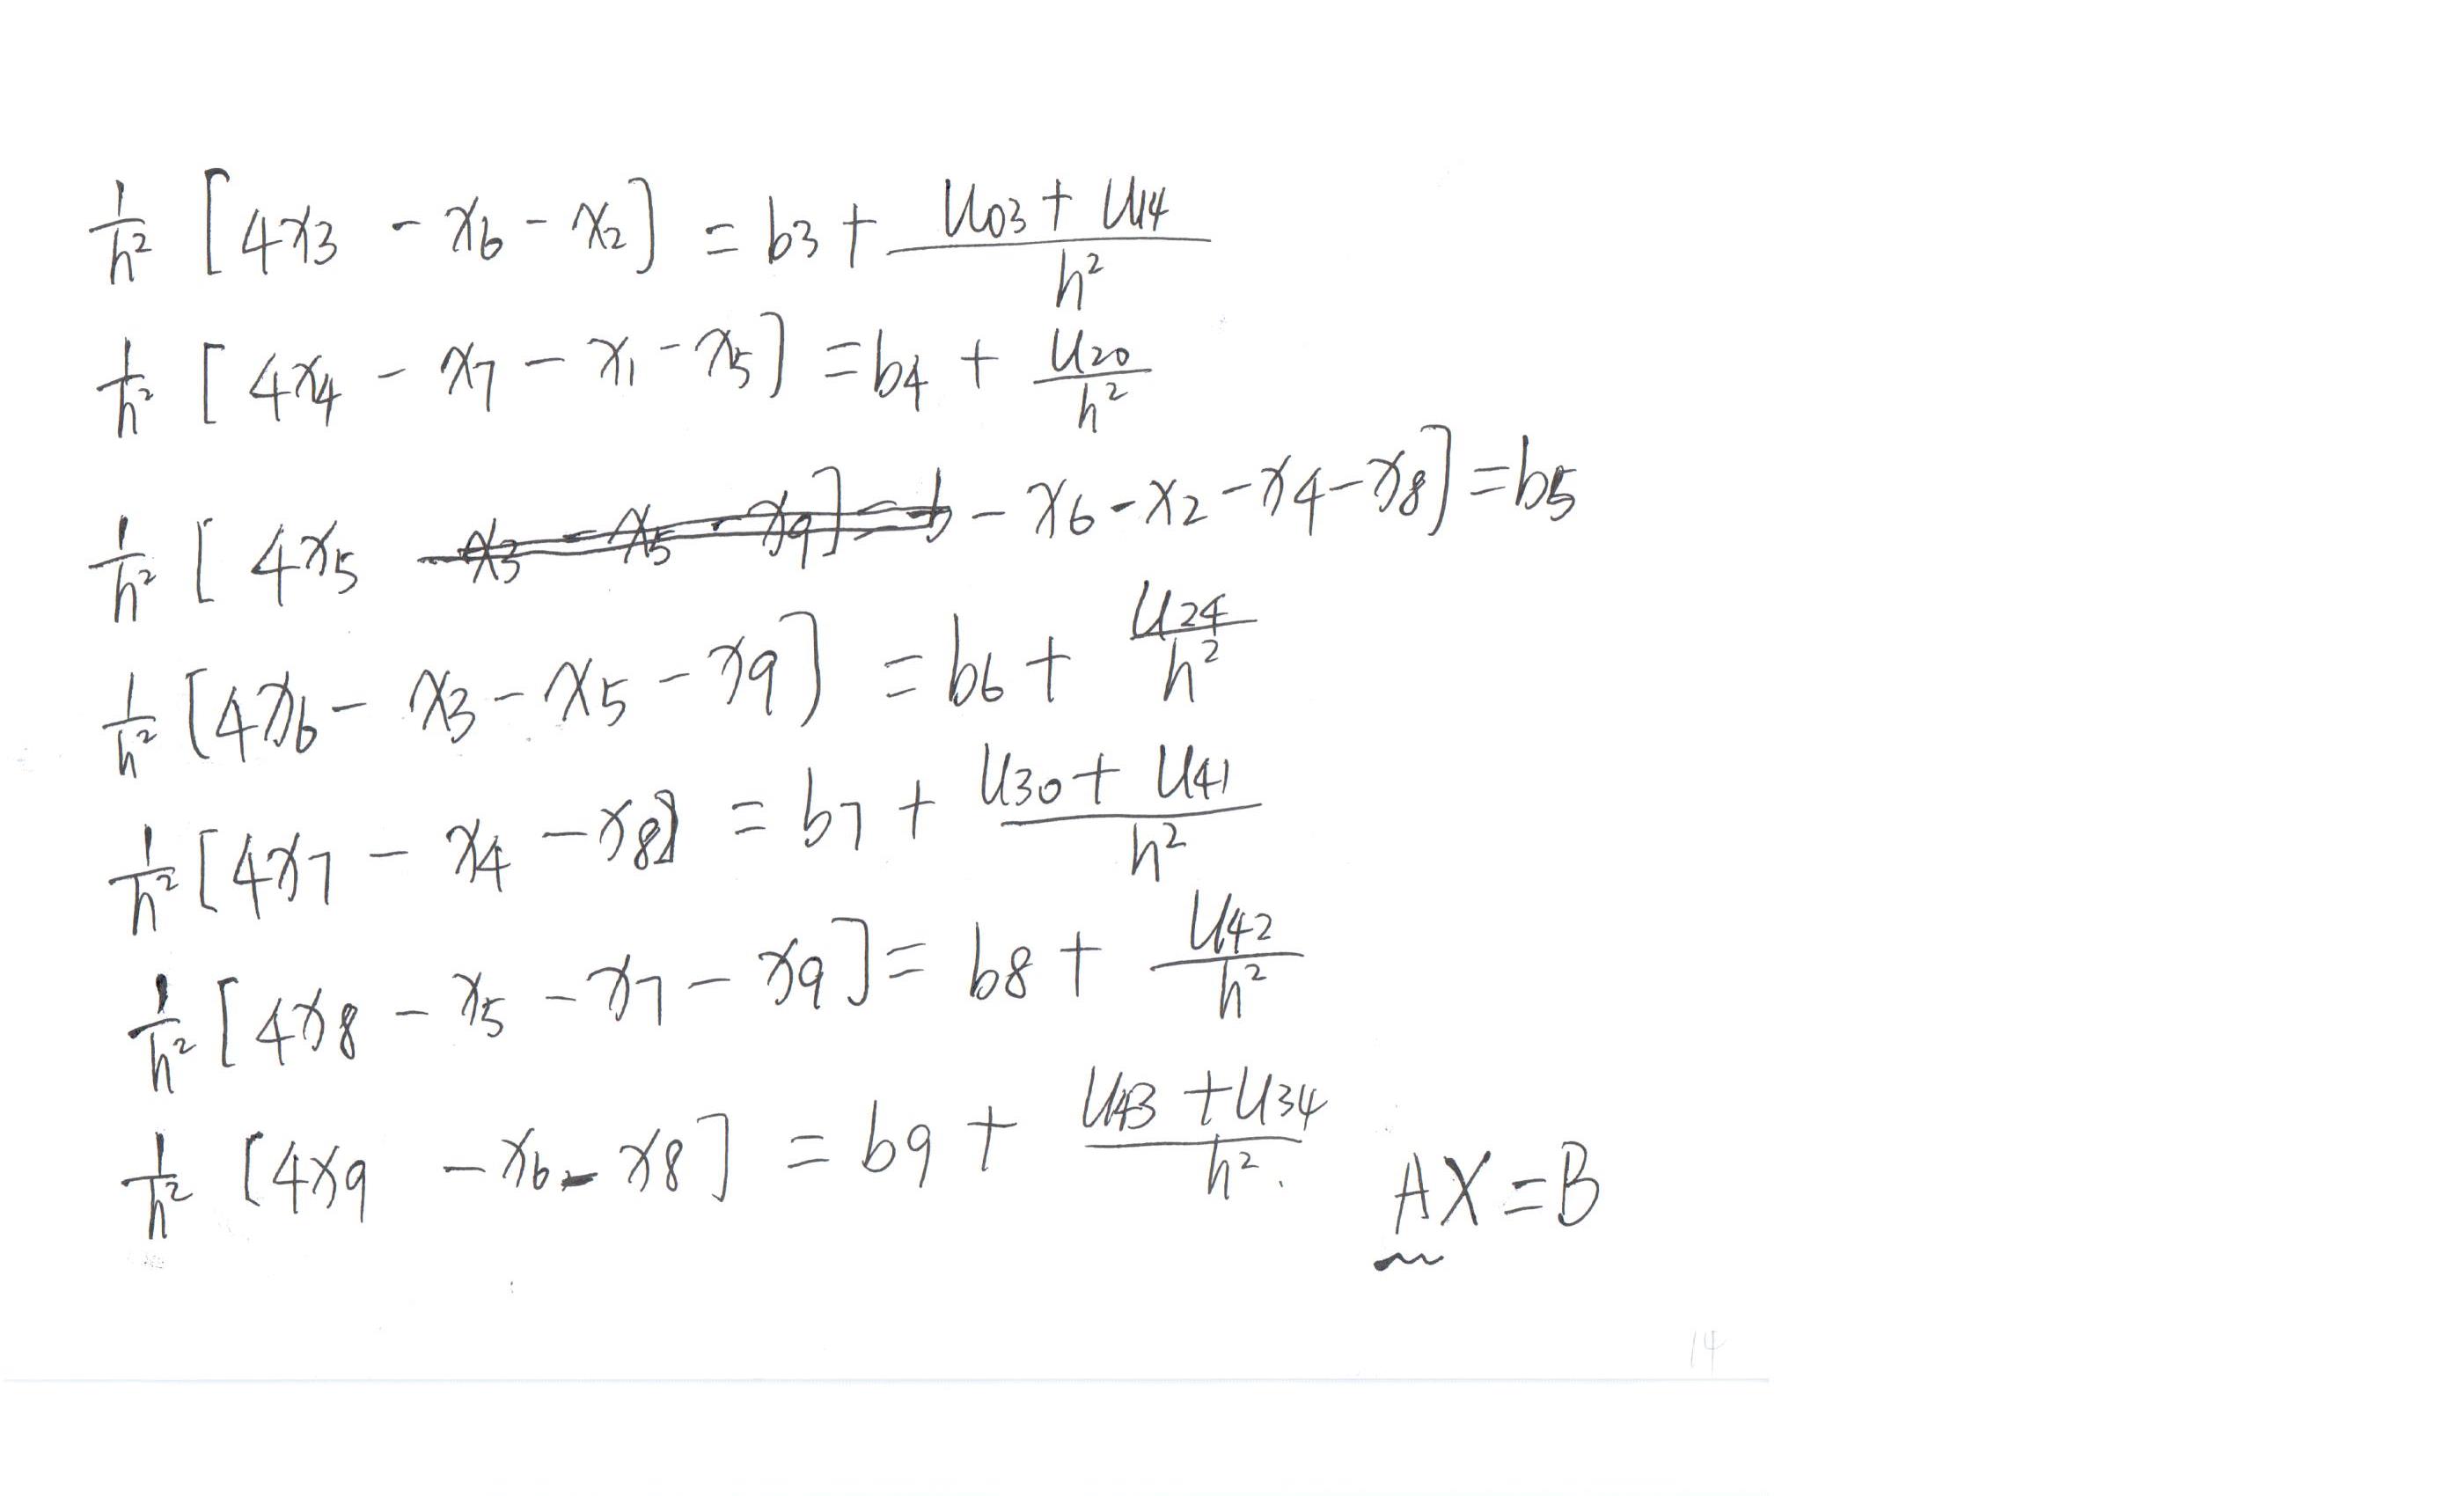 1/h² [4x3 - x6 - x2] = b3 + (u03 + u14)/h²
1/h² [4x4 - x7 - x1 - x5] = b4 + u20/h²
1/h² [4x5 ~~- x3 - x5 - x9] = b~~ - x6 - x2 - x4 - x8] = b5
1/h² [4x6 - x3 - x5 - x9] = b6 + u24/h²
1/h² [4x7 - x4 - x8] = b7 + (u30 + u41)/h²
1/h² [4x8 - x5 - x7 - x9] = b8 + u42/h²
1/h² [4x9 - x6 - x8] = b9 + (u43 + u34)/h².
AX = B
14